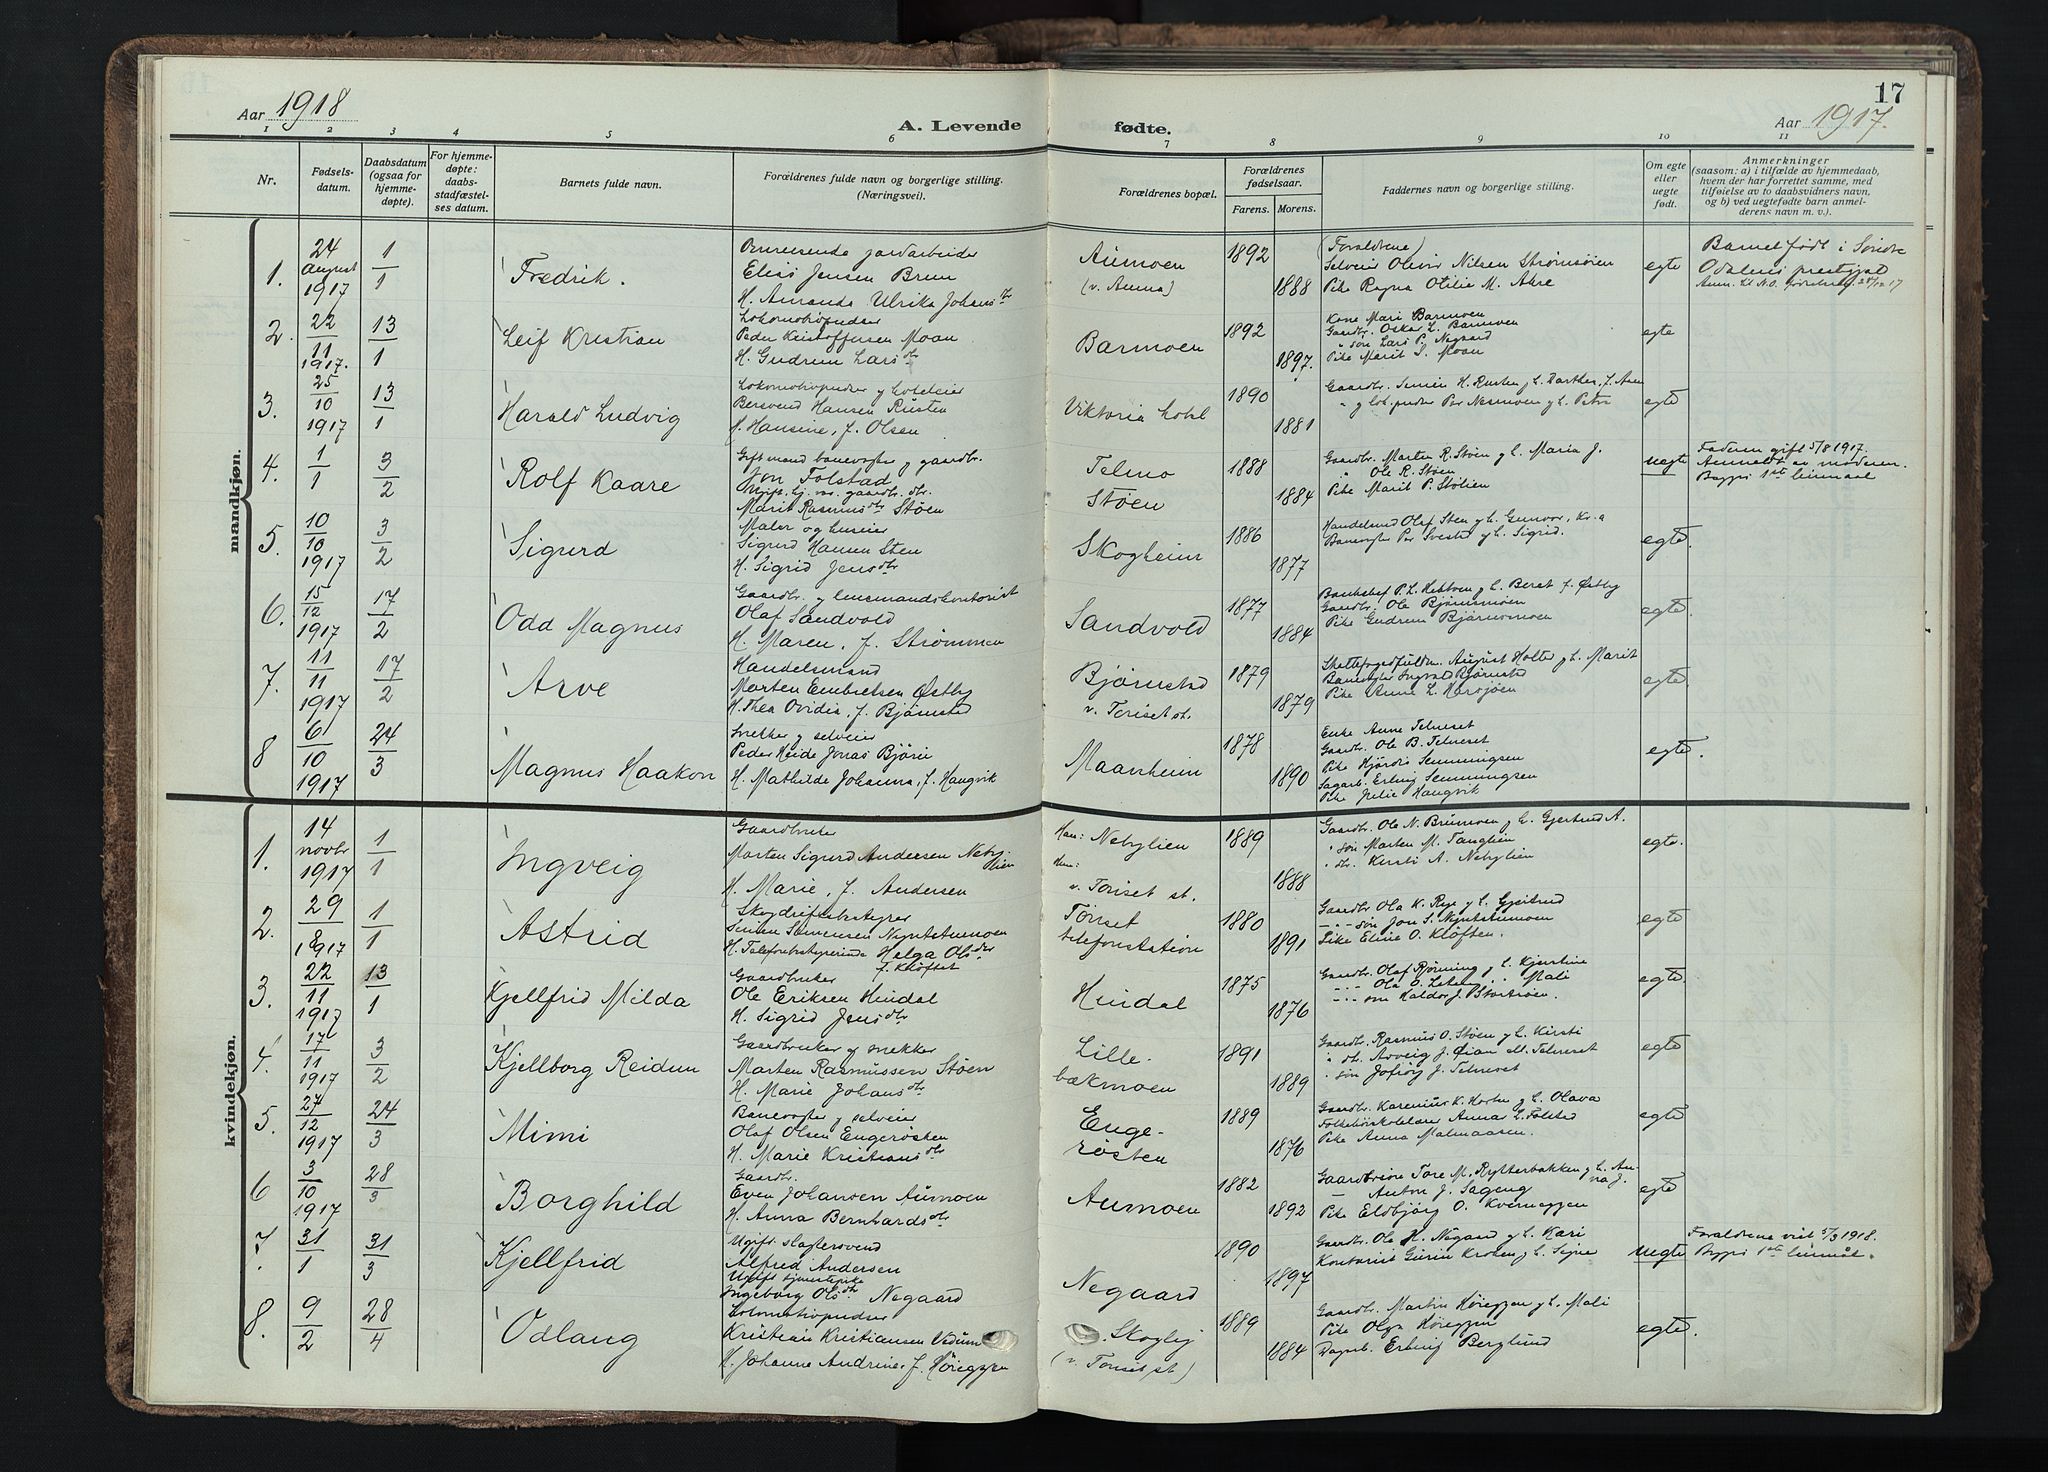 Aar 1918
A. Levende
fødte.
17
Aar 1917.
1 2 3 4 5 6 7 8 9 10 11
Nr.
Fødsels-
datum.
Daabsdatum
(ogsaa for
hjemme-
døpte).
For hjemme-
døpte:
daabs-
stadfæstel-
ses datum.
Barnets fulde navn.
Forældrenes fulde navn og borgerlige stilling.
(Næringsvei).
Forældrenes bopæl.
Forældrenes
fødselsaar.
Farens. Morens.
Faddernes navn og borgerlige stilling.
Om egte
eller
uegte
født.
Anmerkninger
(saasom: a) i tilfælde av hjemmedaab,
hvem der har forrettet samme, med
tilføielse av to daabsvidners navn,
og b) ved uegtefødte barn anmel-
derens navn m. v.).
mandkjøn.
1. 24 august 1917 1/1 Fredrik.
Omreisende jordarbeider
Elesø Jensen Brun
H. Amanda Ulrika Johansdtr
Aumoen
(v. Auma)
1892 1888
(Forældrene)
Selveier Oliver Nilsen Strømsøien
Pike Ragna Otilie M. Akre
egte
Barnet født i Søndre
Odalens prestgjæld
2. 22/11 1917. 13/1 Leif Kristian
Lokomotivpudser
Peder Kristoffersen Moan
H. Gudrun Larsdtr
Barmoen
1892 1897.
Kone Mari Barmoen
Gaardbr. Oskar L. Barmoen
" søn Lars P. Negaard
Pike Marit S. Moan
egte
3. 25/10 1917 13/1 Harald Ludvig
Lokomotivpudser og hoteleier
Bersvend Hansen Rusten
H. Hansine, f. Olsen
Viktoria hotel
1890 1881
Gaardbr. Simen H. Rusten og h. Marthe, f. Aen
" og lok.pudser Per Nesmoen og h. Petra
egte
4. 1/1 3/2 Rolf Kaare
Gift mand banevogter og gaardbr.
Jon Tolstad
Ugift hj.vær. gaardbr.dtr.
Marit Rasmusdtr Støen
Telmo
Støen
1888 1884
Gaardbr. Morten R. Støen og h. Maria J.
" Ole R. Støen
Pike Marit P. Stølien
uegte
Faderen gift 5/8 1917.
Anmeldt av moderen.
Begges 1ste leiermaal
5. 10/10 1917 3/2 Sigurd
Maler og huseier
Sigurd Hansen Sten
H. Sigrid Jensdtr
Skogheim
1886 1877
Handelsmd Olaf Sten og h. Gunvor, Kr.a
Banevogter Per Svested og h. Sigrid.
egte.
6. 15/12 1917 17/2 Odd Magnus
Gaardbr. og lensmandskontorist
Olaf Sandvold
H. Maren, f. Strømmen
Sandvold
1877 1884
Bankchef P. L. Hektoen og h. Beret f. Østby
Gaardbr. Ole Bjørnsmoen
Pike Gudrun Bjørnsmoen
egte.
7. 11/11 1917 17/2 Arve
Handelsmand
Morten Embretsen Østby
H. Thea Ovidia, f. Bjørnstad
Bjørnstad
v. Tønset st.
1879 1879
Skattefogedfuldm. August Holter og h. Marit
Banevogter Ingvald Bjørnstad
Pike Anna L. Harsjøen
egte.
8 6/10 1917 24/3 Magnus Haakon
Snekker og selveier
Peder Heide Jonas Bjørn
H. Mathilde Johanna, f. Haugvik
Maanheim
1878 1890
Enke Anne Telneset
Gaardbr. Ole B. Telneset
Pike Hjørdis Semmingsen
Sagarb. Erling Semmingsen
Pike Julie Haugvik
egte.
kvindekjøn.
1. 14 novbr 1917 1/1 Ingveig
Gaardbruker
Morten Sigurd Andersen Nebylien
H. Marie, f. Andersen
Han: Nebylien
Hun:
v. Tønset st.
1889 1888
Gaardbr. Ole N. Brumoen og h. Gjertrud A.
" søn Morten M. Tanglien
" dtr. Kirsti A. Nebylien
egte.
2. 29/8 1917 1/1 Astrid
Skogdriftsbestyrer
Simen Simensen Nyutstumoen
H. Telefonbestyrerinde Helga Olsdtr
f. Kløftet
Tønset
telefonstation
1880 1891
Gaardbr Ola K. Rye og h. Gjertrud
" " søn Jon S. Nyutstumoen
Pike Eline O. Kløften.
egte
3. 22/11 1917 13/1 Kjellfrid Milda
Gaardbruker
Ole Eriksen Hindal
H. Sigrid Jensdtr
Hindal
1875 1876
Gaardbr. Olaf Rønning og h. Kjerstine
" " Ola O. Leten " " Mali
" " søn Haldor J. Stortrøen.
egte.
4. 17/11 1917 3/2 Kjellborg Reidun
Gaardbruker og snekker
Morten Rasmussen Støen
H. Marie Johansdtr
Lille-
bækmoen
1891 1889
Gaardbr. Rasmus O. Støen og h. Kirsti
" dtr. Aoveig J. Øian
" søn Jofrig J. Telneset
egte
5. 27/12 1917 24/3 Mimi
Banevogter og selveier
Olaf Olsen Engerøsten
H. Marie Kristiansdtr
Enge-
røsten
1889 1876
Gaardbr. Karenius K. Horten og h. Olava
Folkehøiskolelærer Annar L. Tolstad
Pike Anna Malmaasen.
egte
6 3/10 1917 28/3 Borghild
Gaardbr.
Even Johansen Aumoen
H. Anna Bernhardsdtr
Aumoen
1882 1892
Gaardbruker Tore M. Rytterbakken og h. Anna J.
— Anton J. Sageng
Pike Eldbjørg O. Kverneggen
egte
7. 31/1 31/3 Kjellfrid
Ugift slagtersvend
Alfred Andersen
Ugift tjenestepike
Ingeborg Olsdtr Negaard
Negaard
1890 1897
Gaardbr. Ole H. Negaard og h. Kari
Kontorist Gurin Kroken og h. Signe
uegte
Forældrene viet 5/3 1918.
Begges 1ste leiermål.
8. 9/2 28/4 Odlaug
Lokomotivpudser
Kristian Kristiansen Vidum
H. Johanne Andrine, f. Høieggen
Skoglej
(v. Tønset st)
1889 1884
Gaardbr. Martin Høieggen og h. Mali
Pike Olga Høieggen
Dagarb. Erling Berglund
egte.